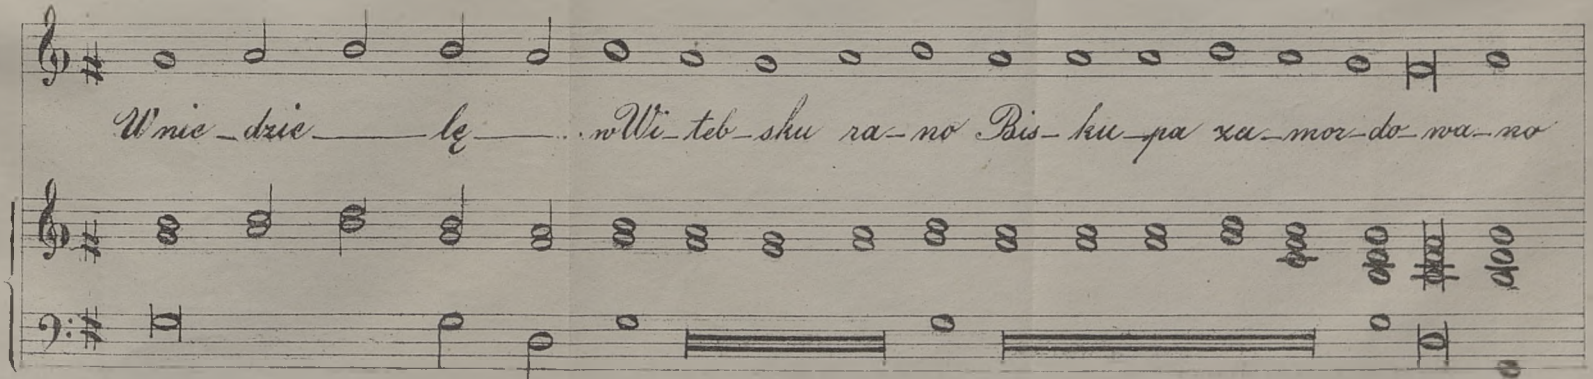 W nie_dzie___lę___. w Wi_teb_sku ra_no Bis_ku_pa za_mor_do_wa_no